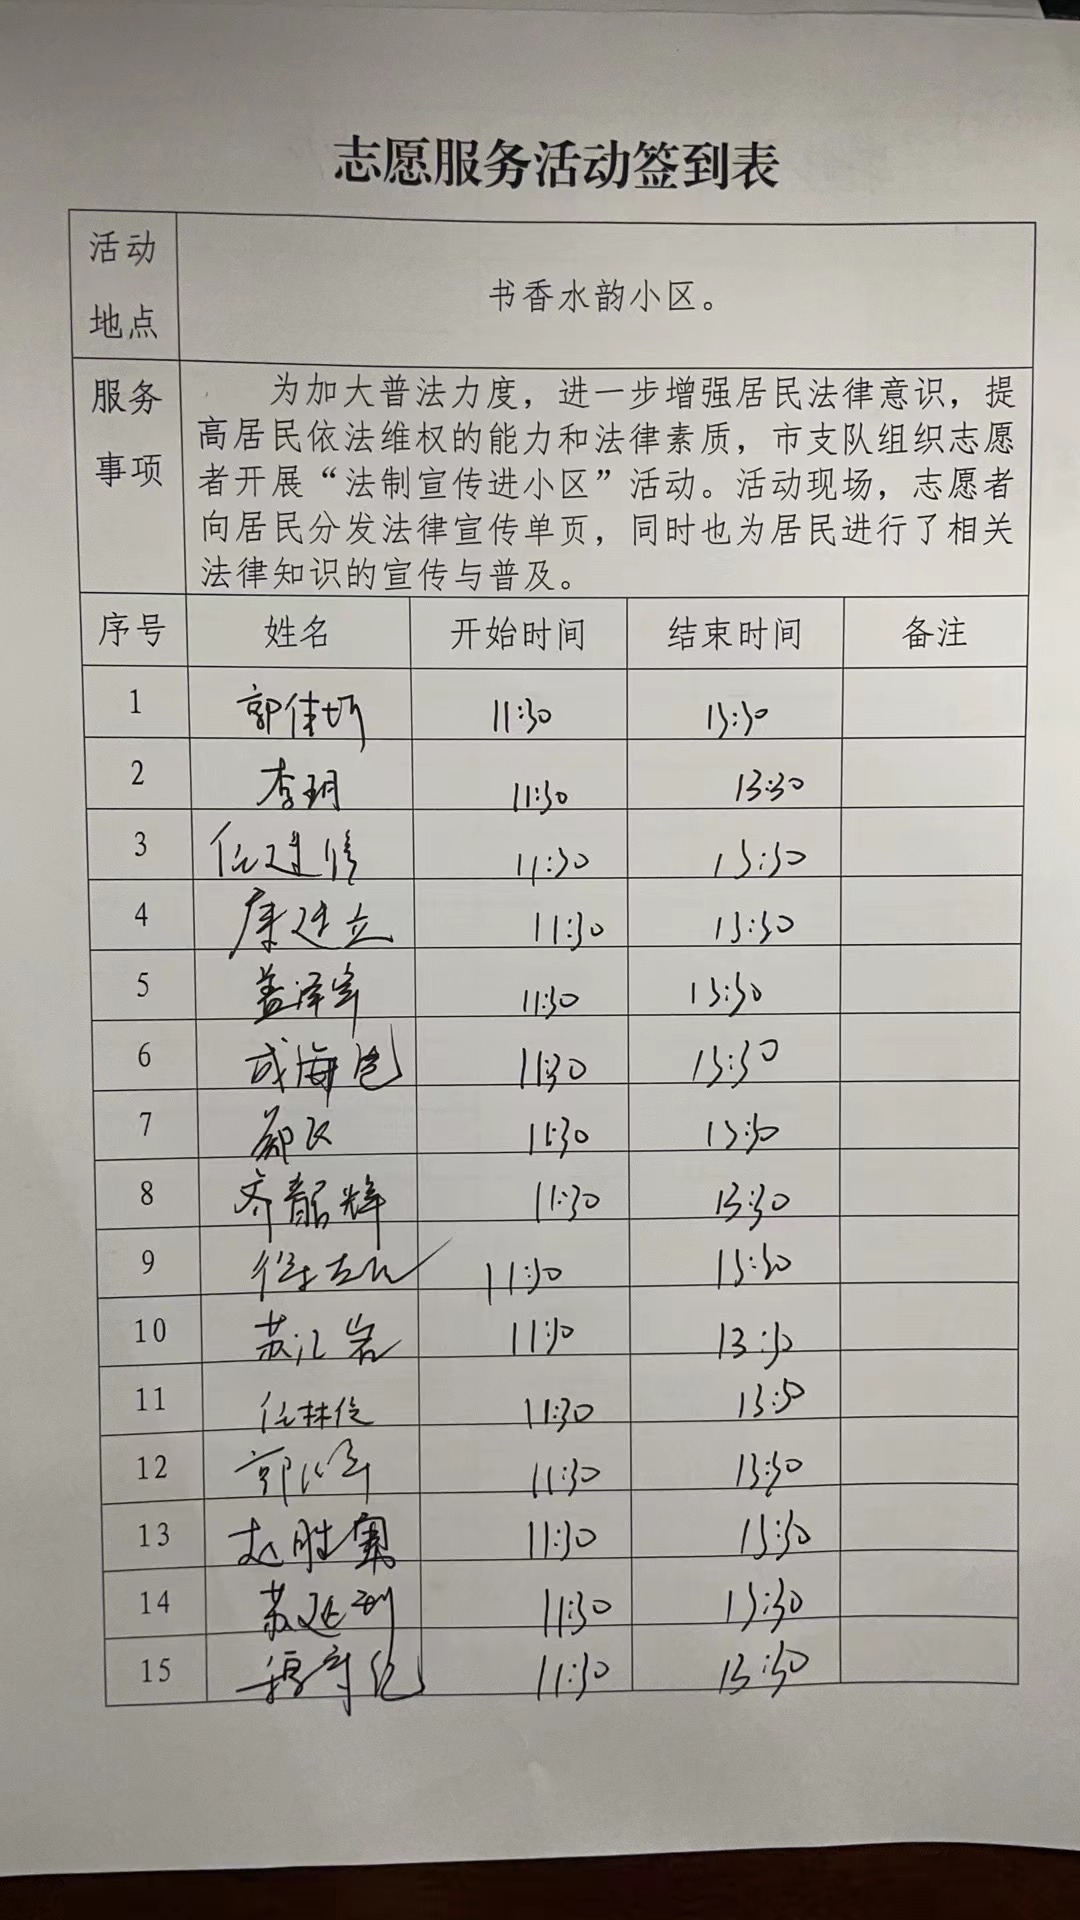 志愿服务活动签到表
活动地点 书香水韵小区。
服务事项 为加大普法力度，进一步增强居民法律意识，提
高居民依法维权的能力和法律素质，市支队组织志愿
者开展“法制宣传进小区”活动。活动现场，志愿者
向居民分发法律宣传单页，同时也为居民进行了相关
法律知识的宣传与普及。
序号 姓名 开始时间 结束时间 备注
1 郭佳 11:30 13:30
2 李玥 11:30 13:30
3 任建修 11:30 13:30
4 康廷立 11:30 13:30
5 盖泽军 11:30 13:30
6 成海 11:30 13:30
7 11:30 13:30
8 齐韶辉 11:30 13:30
9 徐 11:30 13:30
10 苏汇岩 11:30 13:30
11 任林俊 11:30 13:30
12 郭 11:30 13:30
13 赵胜 11:30 13:30
14 苏延 11:30 13:30
15 11:30 13:30